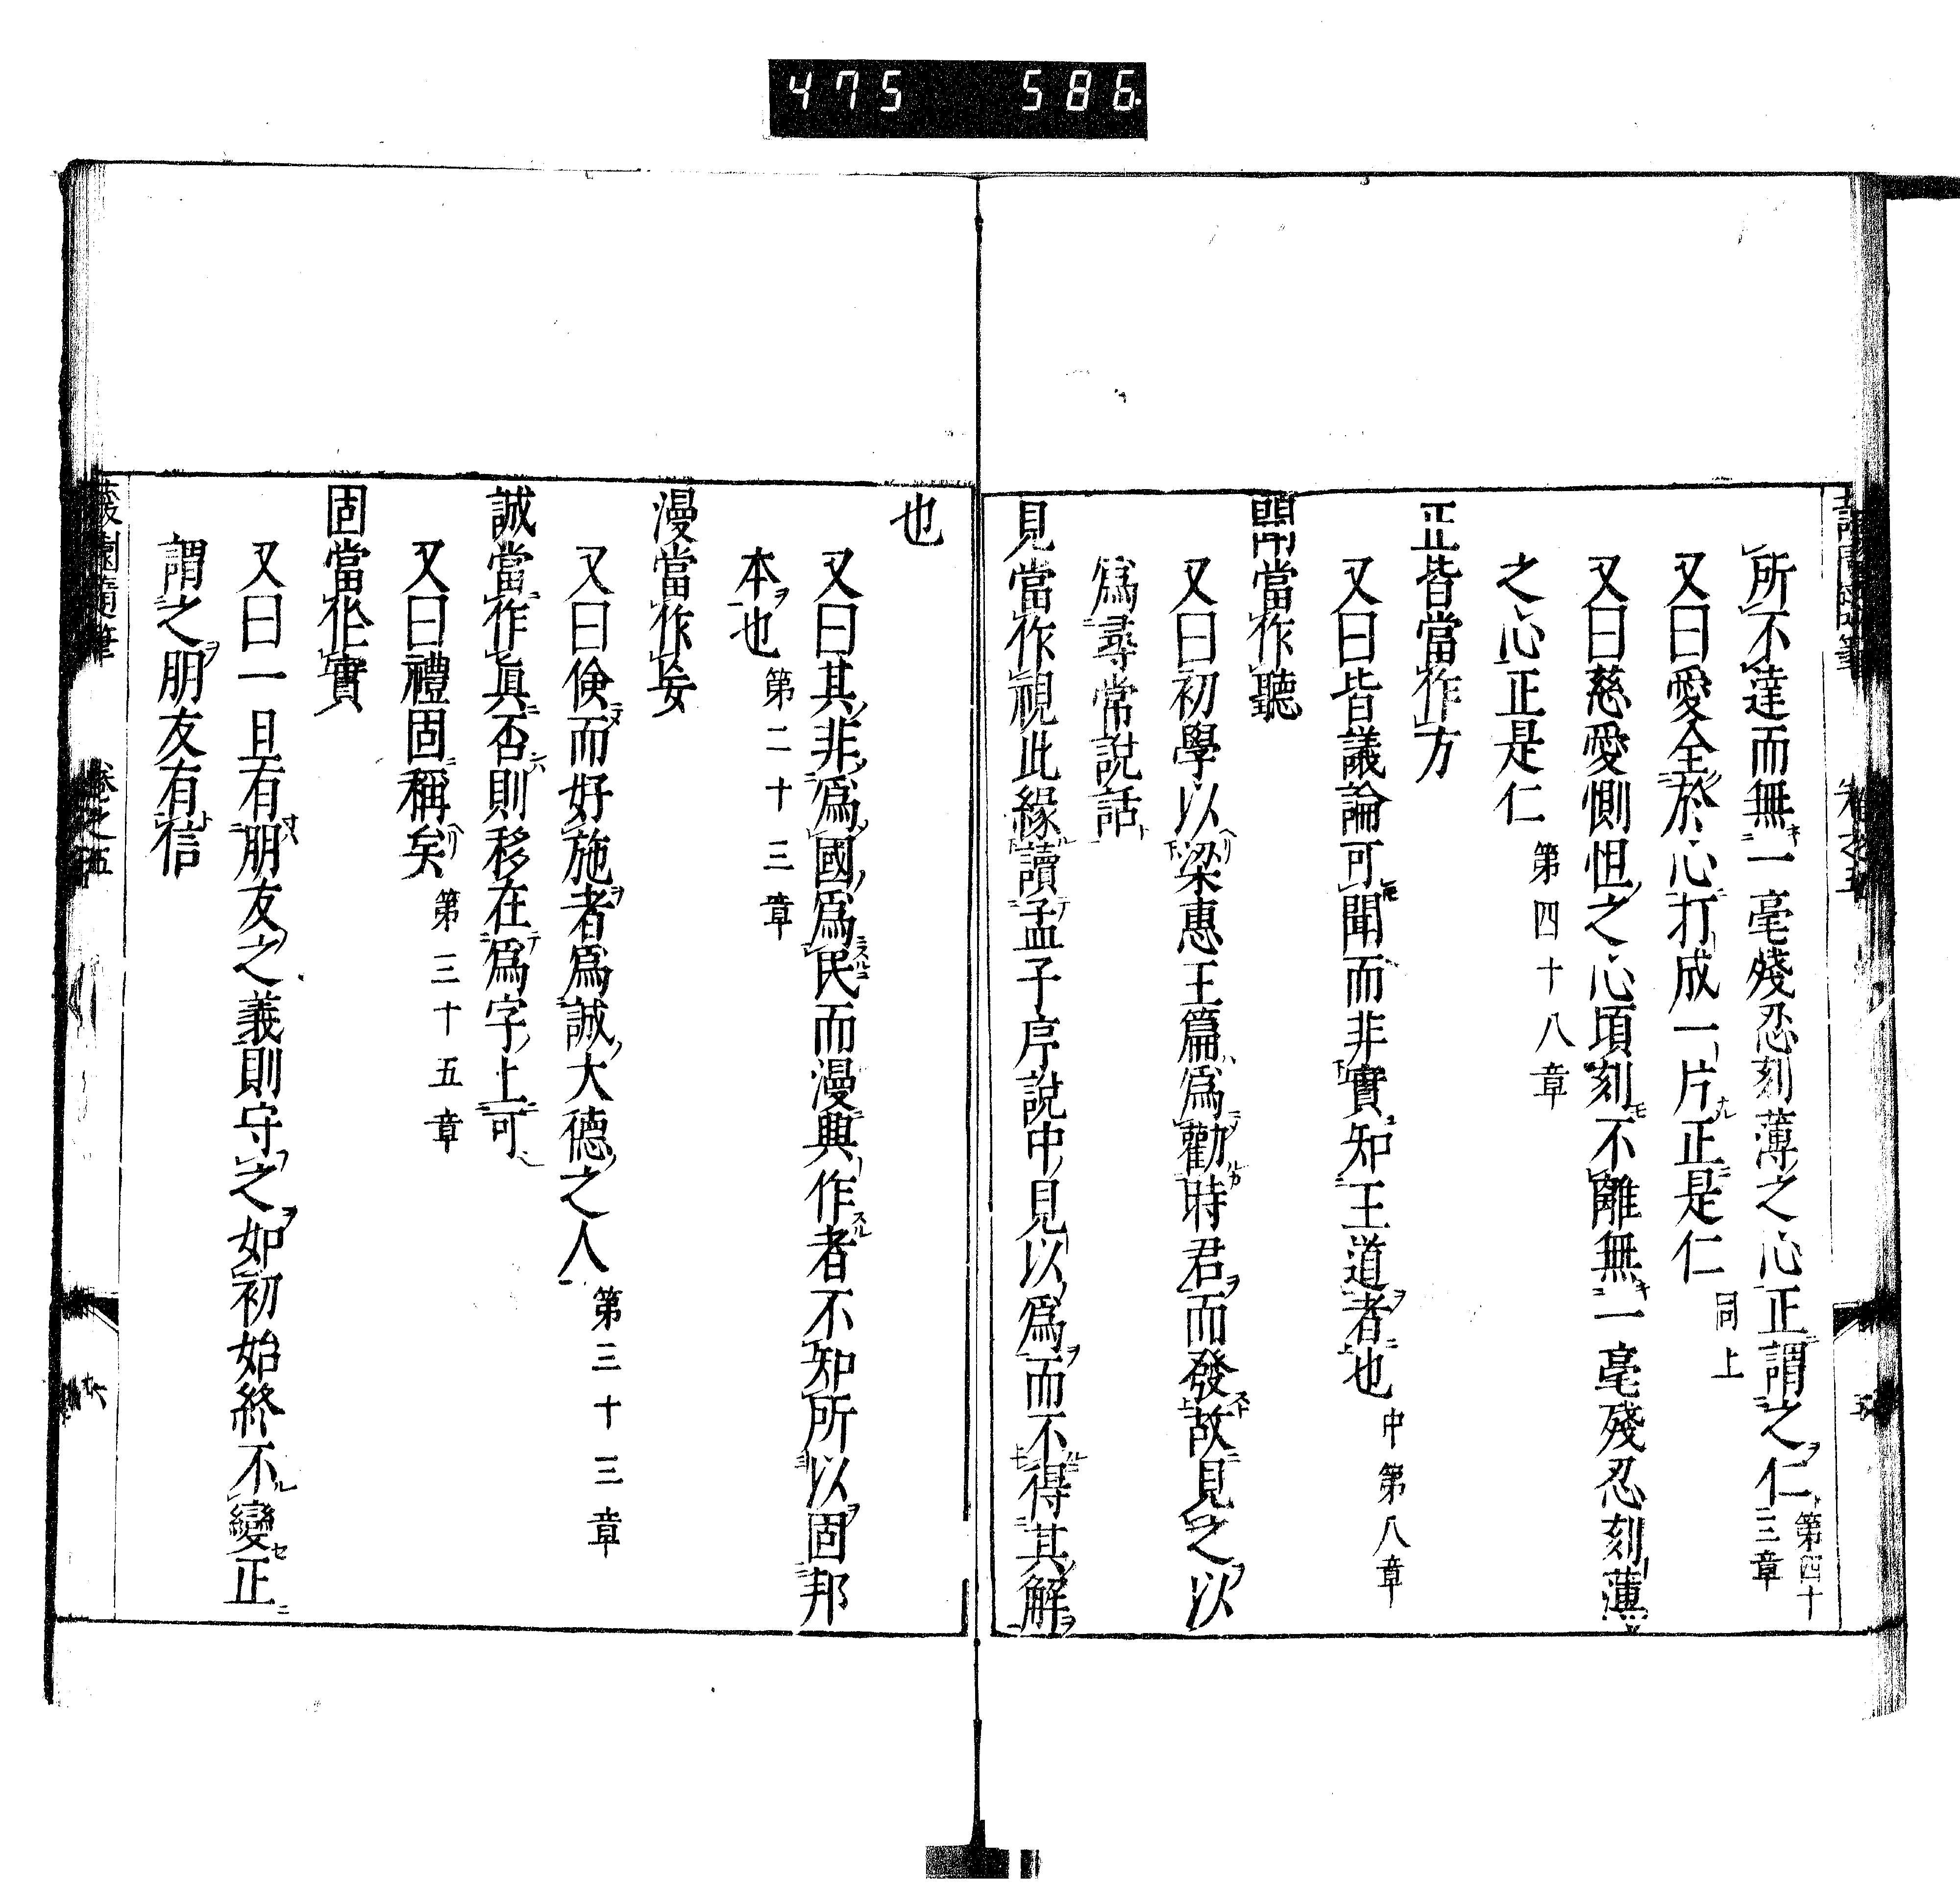 475 586
所不達而無一毫殘忍刻薄之心正謂之仁第四十三章
又曰愛全於心打成一片正是仁同上
又曰慈愛惻怛之心頃刻不離無一毫殘忍刻薄
之心正是仁第四十八章
正皆當作方
又曰皆議論可聞而非實知王道者也中第八章
聞當作聽
又曰初學以梁惠王篇爲勸時君而發故見之以
爲尋常說話
見當作視此緣讀孟子序說中見以爲而不得其解
也
又曰其非爲國爲民而漫興作者不知所以固邦
本也第二十三章
漫當作妄
又曰儉而好施者爲誠大德之人第三十三章
誠當作眞否則移在爲字上可
又曰禮固稱矣第三十五章
固當作實
又曰一旦有朋友之義則守之如初始終不變正
謂之朋友有信
蘐園隨筆 卷之五 廿六